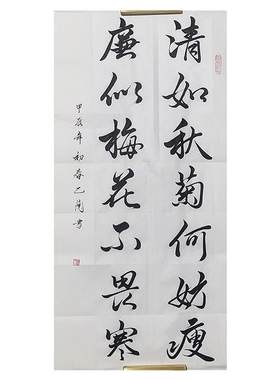 清如秋菊何妨瘦
廉似梅花不畏寒
甲辰年初春乙蘭书